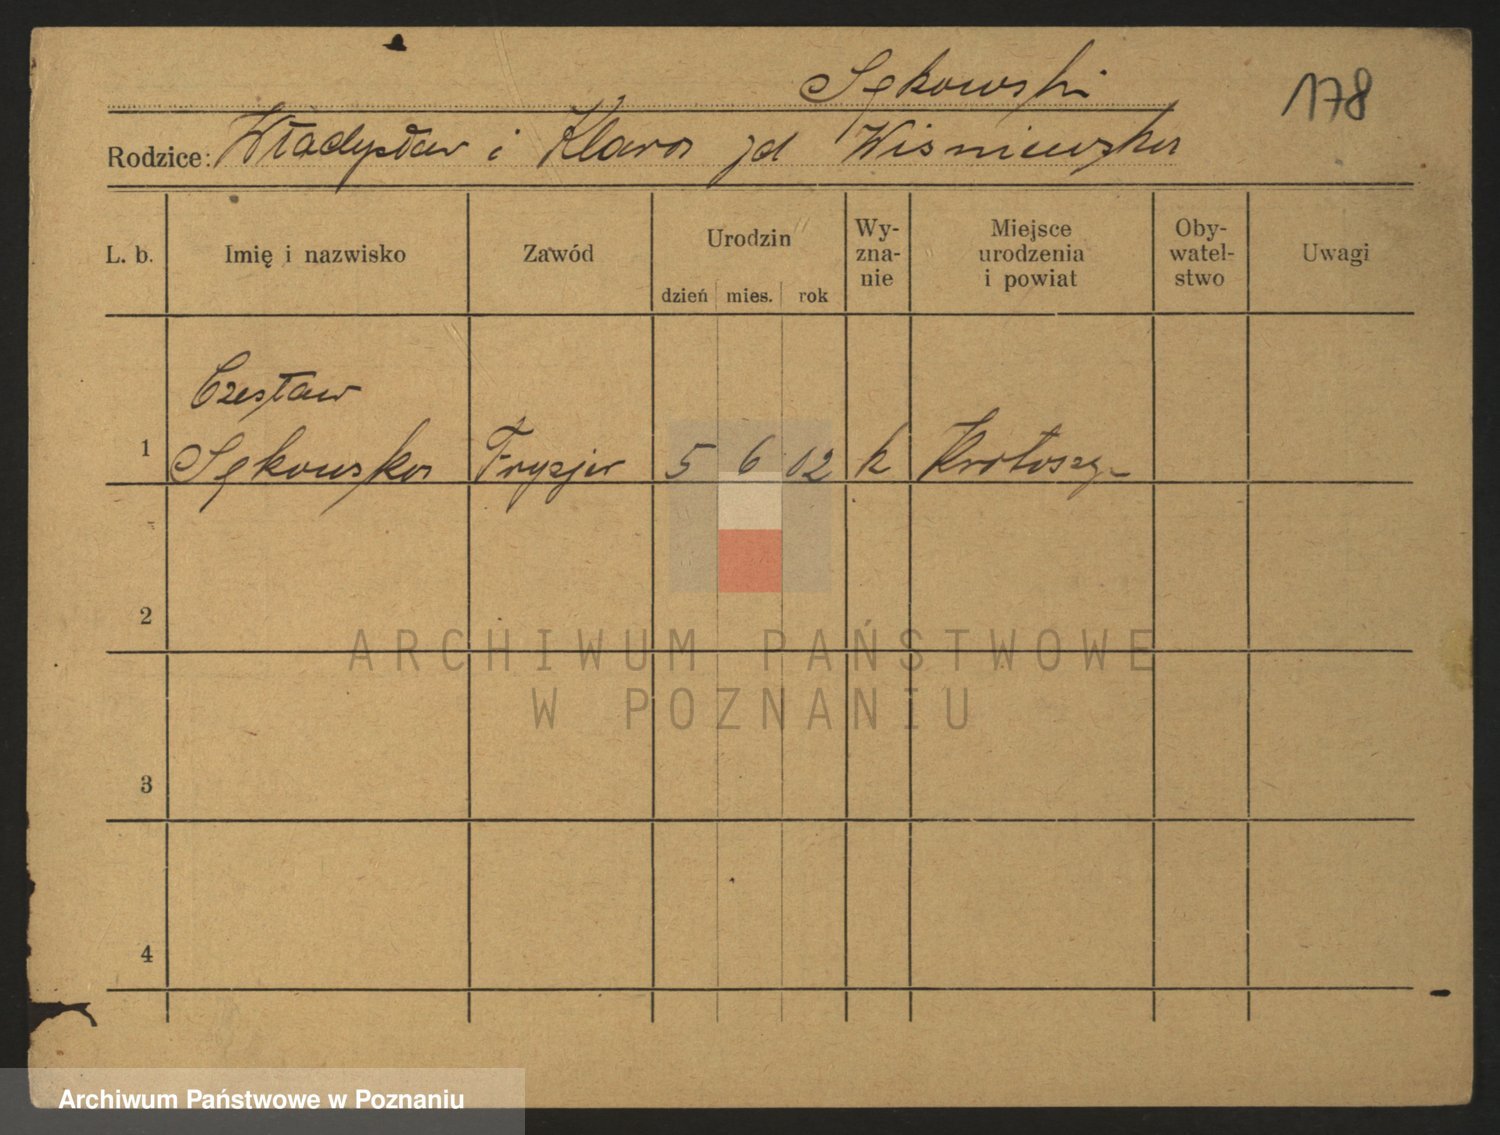 Sękowski
178
Rodzice: Władysław i Klara zd Wiśniewska
L. b.
Imię i nazwisko
Zawód
Urodzin
dzień mies. rok
Wy-
zna-
nie
Miejsce
urodzenia
i powiat
Oby-
watel-
stwo
Uwagi
Czesław
1 Sękowska Fryzjer 5 6 02 k Krotoszyn
2
3
4
ARCHIWUM PAŃSTWOWE
W POZNANIU
Archiwum Państwowe w Poznaniu